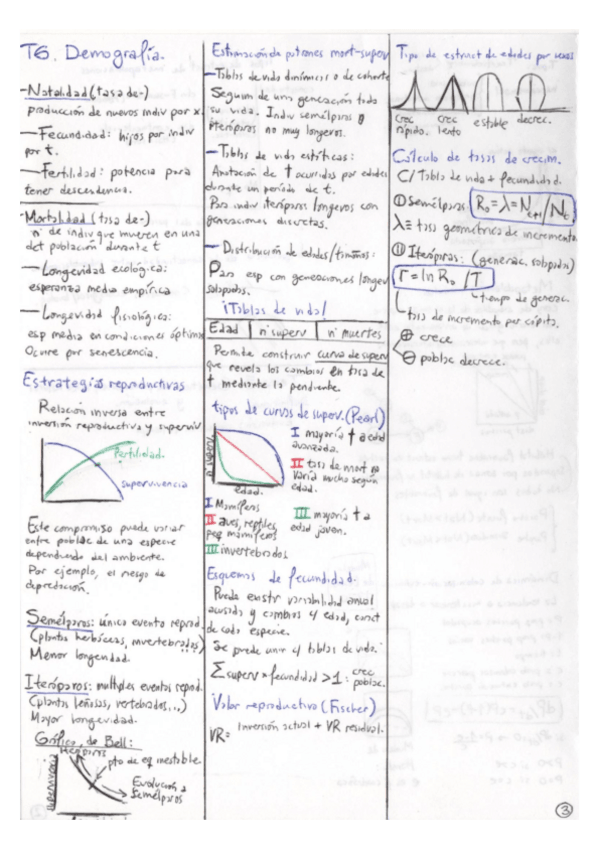 T6. Demografía.
-Natalidad (tasa de-)
producción de nuevos indiv por x.
-Fecundidad: hijos por indiv
por t.
-Fertilidad: potencia para
tener descendencia.
-Mortalidad (tasa de-)
nº de indiv que mueren en una
det población durante t
-Longevidad ecológica:
esperanza media empírica
-Longevidad fisiológica:
esp media en condiciones óptimas
Ocurre por senescencia.
Estrategias reproductivas
Relación inversa entre
inversión reproductiva y superviv
fertilidad.
supervivencia
Este compromiso puede variar
entre poblac de una especie
dependiendo del ambiente.
Por ejemplo, el riesgo de
depredación.
Semélparos: único evento reprod.
(plantas herbáceas, invertebrados)
Menor longevidad.
Iteróparos: multiples eventos reprod.
(plantas leñosas, vertebrados...)
Mayor longevidad.
Gráfico de Bell:
Iteróparos
pto de eq inestable.
Evolución a
semélparos
supervivencia
Estimación de patrones mort-superv
-Tablas de vida dinámicas o de cohorte
Seguim de una generación toda
su vida. Indiv semélparos o
iteróparos no muy longevos.
-Tablas de vida estáticas:
Anotación de † ocurridas por edades
durante un período de t.
Para indiv iteróparos longevos con
generaciones discretas.
- Distribución de edades/tamaños:
Para esp con generaciones longev
solapadas.
¡Tablas de vida!
Edad | nº superv | nº muertes
Permite construir curva de superv
que revela los cambios en tasa de
† mediante la pendiente.
tipos de curvas de superv. (Pearl)
nº superv.
edad.
I mayoría † a edad
avanzada.
II tasa de mort no
varía mucho según
edad.
I Mamíferos
II aves, reptiles,
peq mamíferos
III invertebrados
III mayoría † a
edad joven.
Esquemas de fecundidad.
Puede existir variabilidad anual
acusada y cambios c/ edad, caract
de cada especie.
Se puede unir a tablas de vida.
Σ superv × fecundidad > 1: crec
poblac.
Valor reproductivo (Fischer)
VR= inversión actual + VR residual.
Tipo de estruct de edades por sexos
crec rápido.
crec lento
estable
decrec.
Cálculo de tasas de crecim.
C/ Tabla de vida + fecundidad.
I semélparos: R₀ = λ = Nₜ₊₁/Nₜ
λ = tasa geométrica de incremento
II Iteróparos: (generac. solapadas)
r = ln R₀ / T
tiempo de generac.
tasa de incremento per cápita.
⊕ crece
⊖ poblac decrece.
3